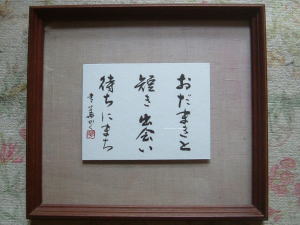 おだまきと
短き出会い
待ちにまち